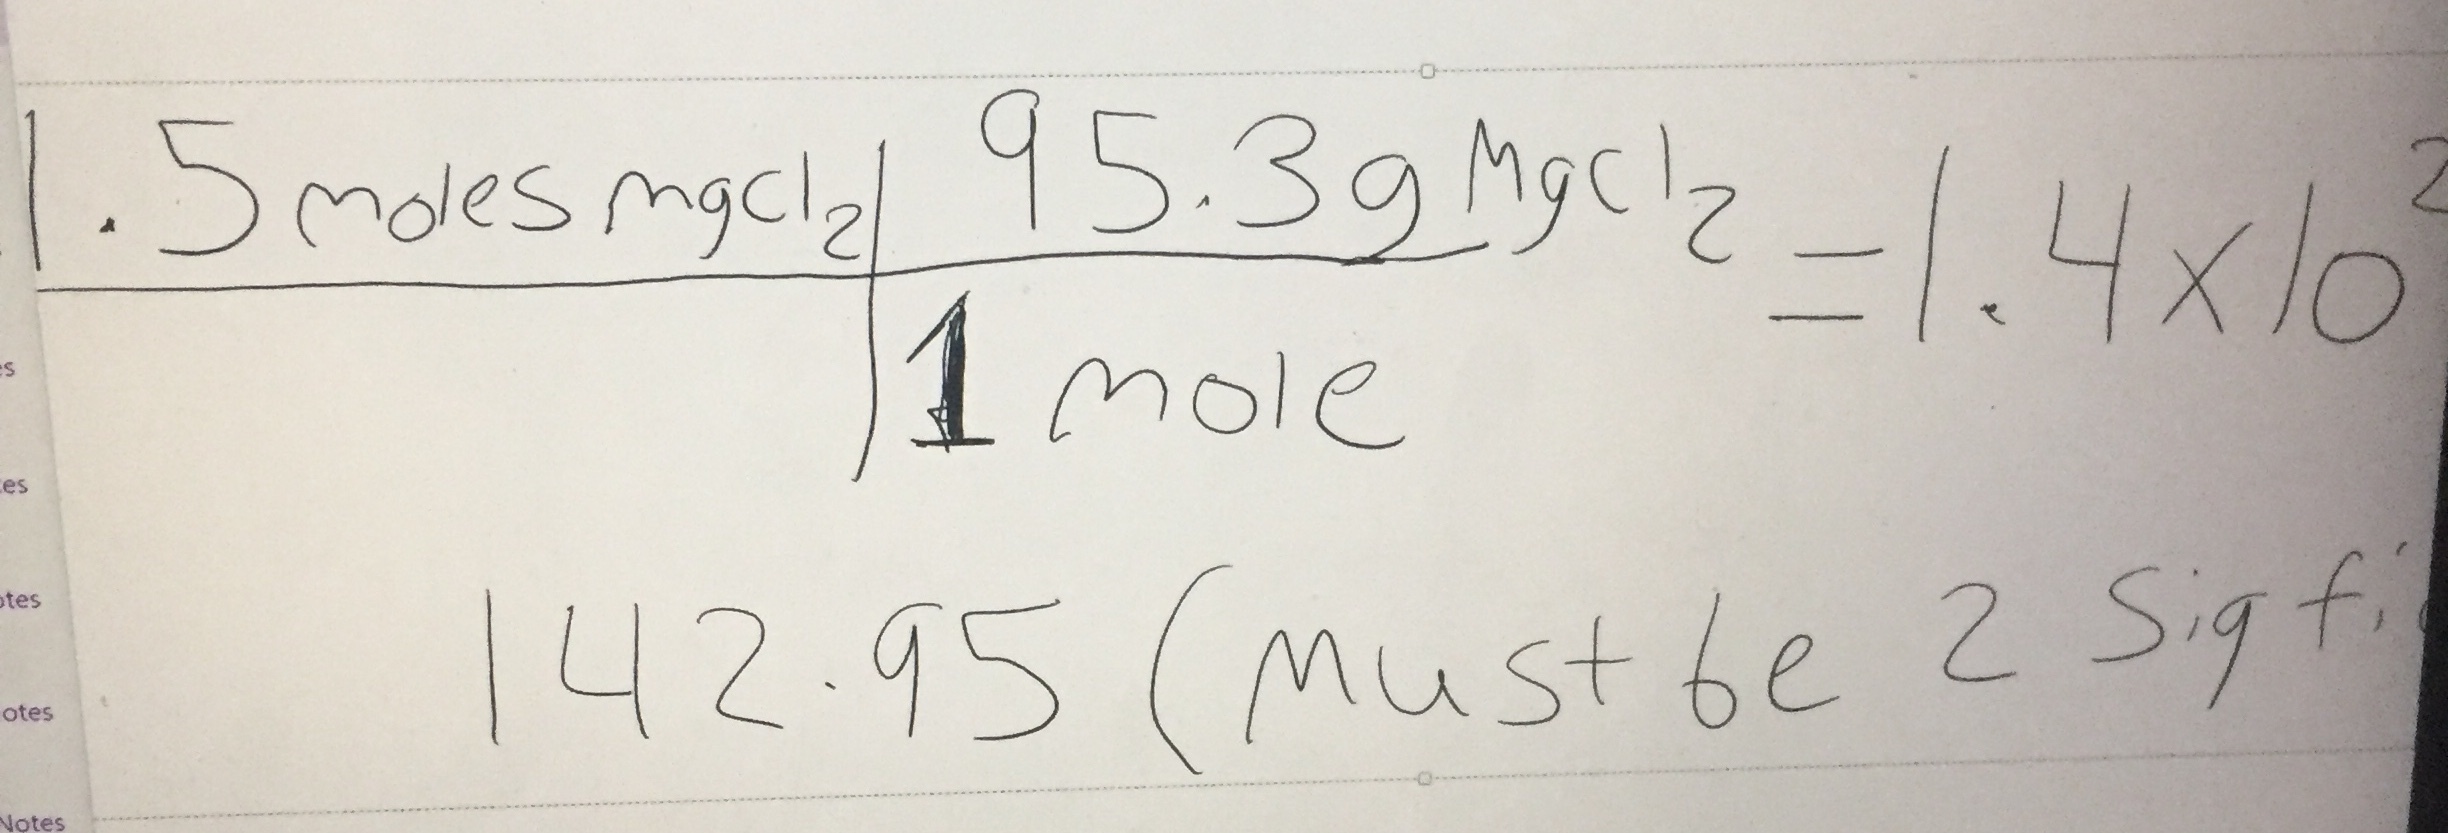 1.5 moles mgCl₂ | 95.3g MgCl₂ = 1.4 x 10²
1 mole
142.95 (Must be 2 Sig fi
otes
otes
Notes